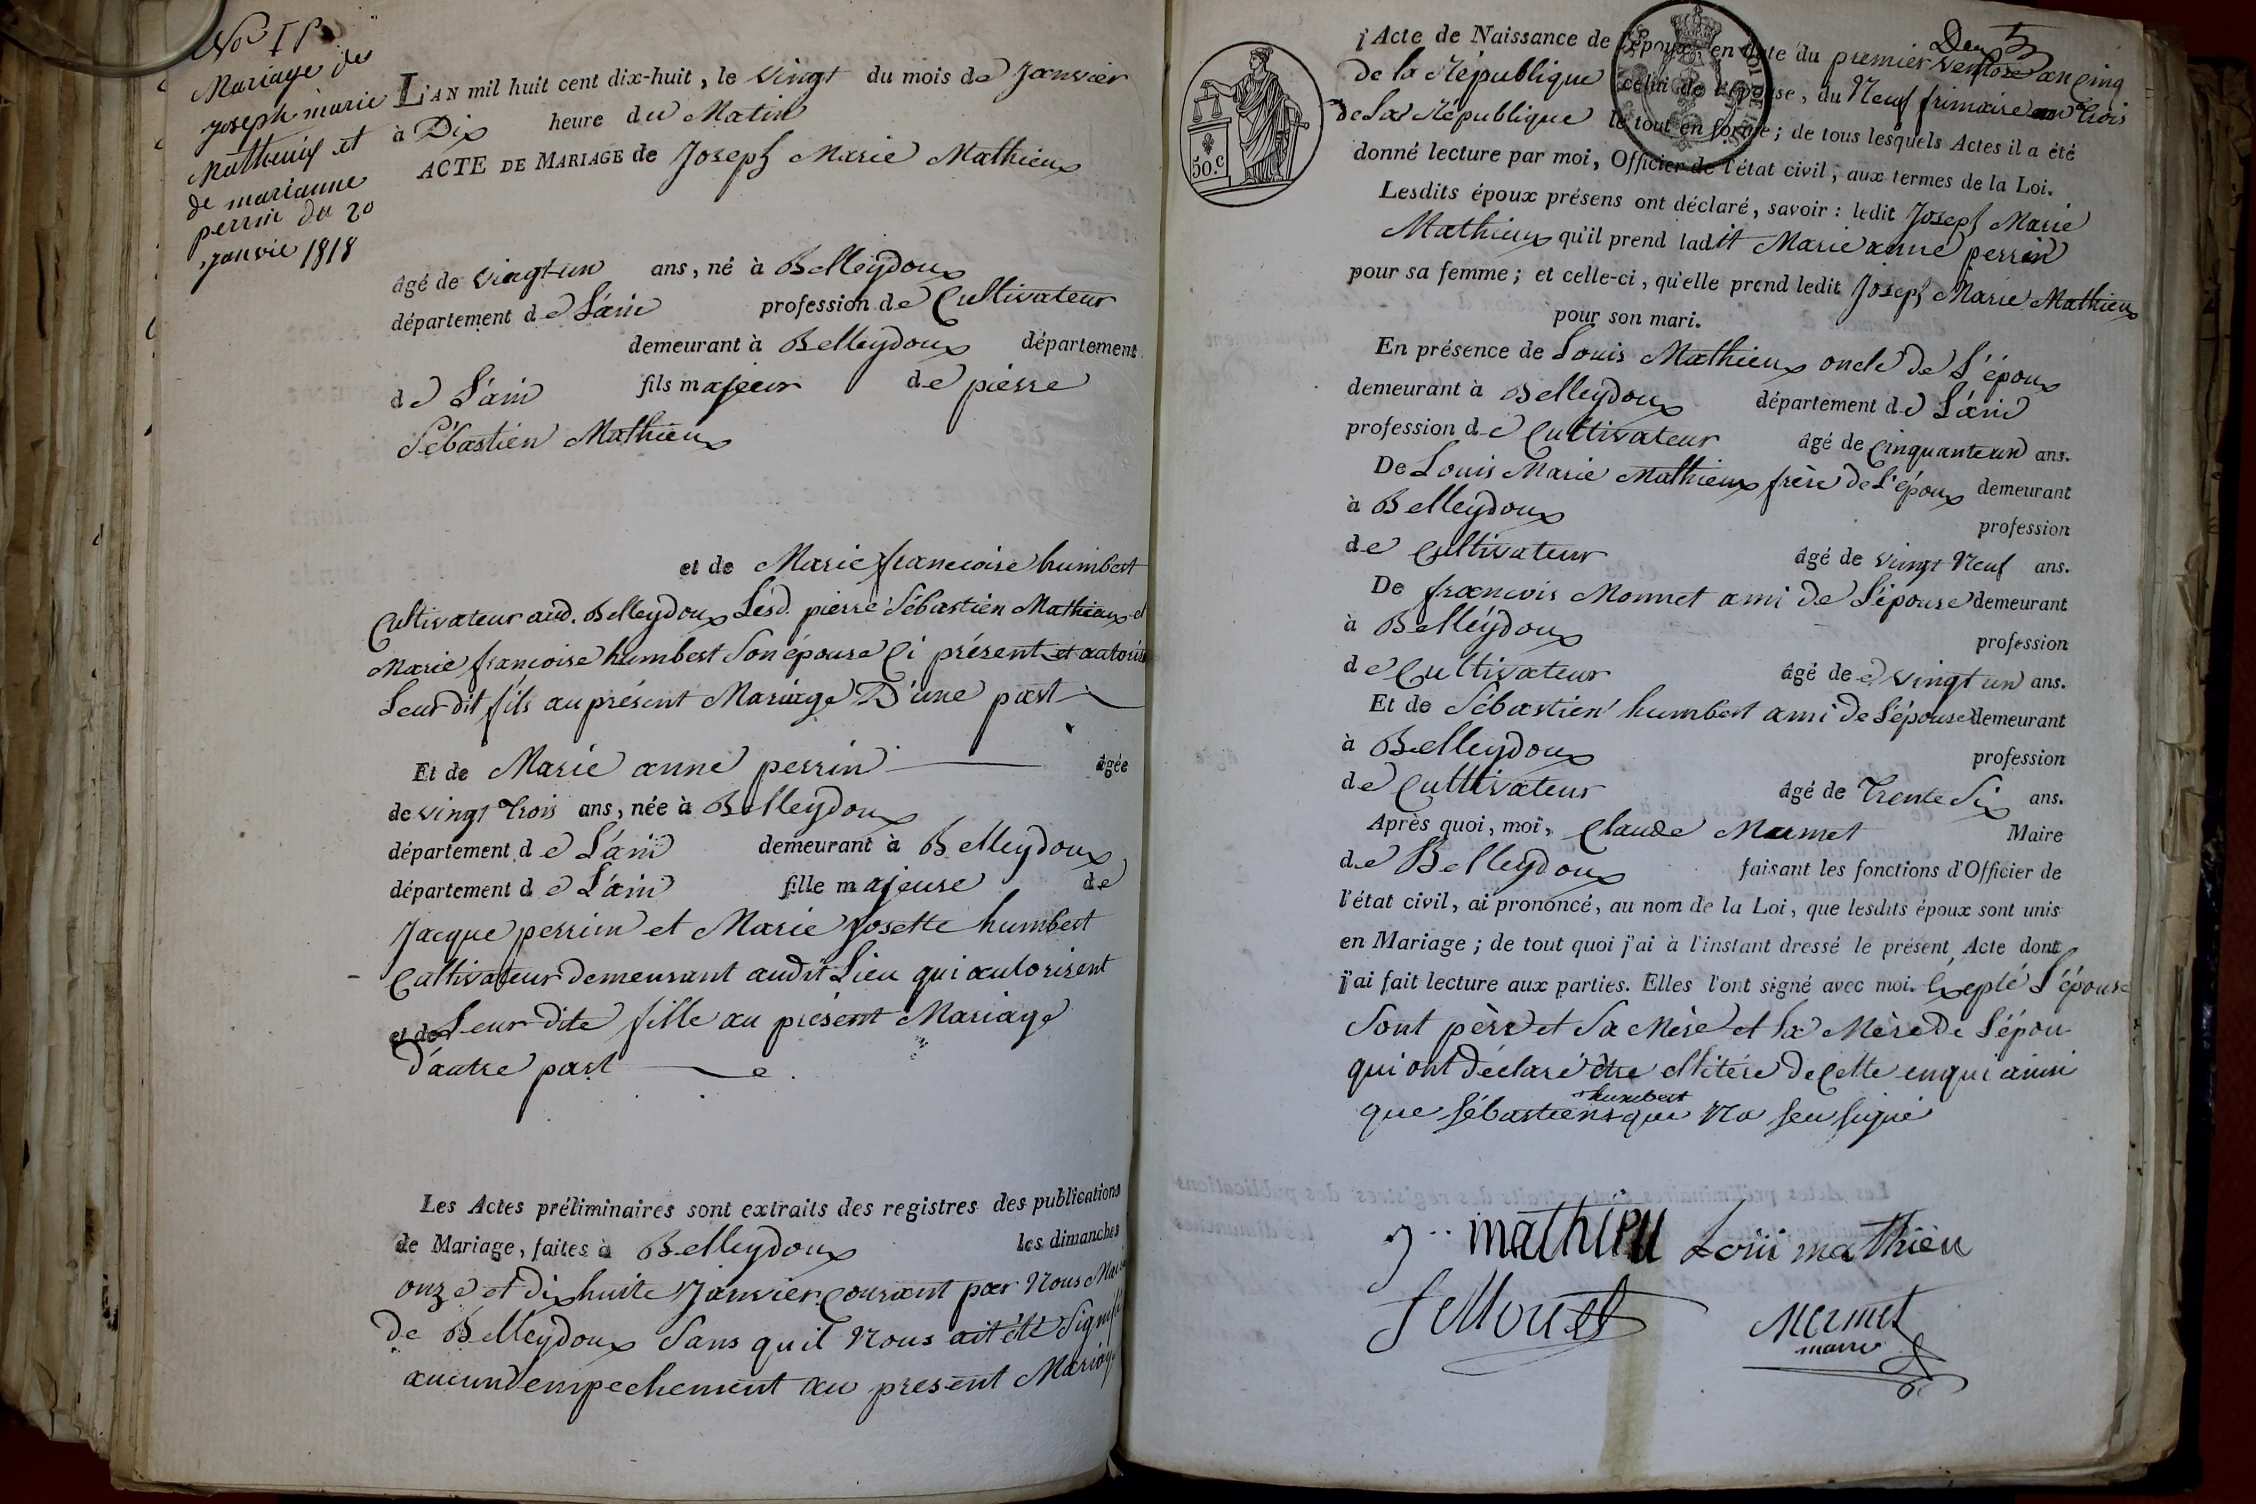 Mariage de
joseph marie
Mathieux et
de marianne
perrin du 20
janvie 1818
L'AN mil huit cent dix-huit, le vingt du mois de Janvier
à Dix heure du Matin
ACTE DE MARIAGE de Joseph Marie Mathieux
âgé de vingt-un ans, né à Belleydoux
département de L'ain profession de Cultivateur
demeurant à Belleydoux département
de L'ain fils majeur de pierre
Sébastien Mathieux
et de Marie francoise humbert
Cultivateur aud. Belleydoux Lesd. pierre Sébastien Mathieux et
Marie francoise humbert Son épouse Ci présent et autoris
Leur dit fils au présent Mariage D'une part
Et de Marie anne perrin âgée
de vingt trois ans, née à Belleydoux
département de L'ain demeurant à Belleydoux
département de L'ain fille majeure de
Jacque perrin et Marie Josette humbert
Cultivateur demeurant audit Lieu qui autorisent
et de Leur dite fille au présent Mariage
d'autre part
Les Actes préliminaires sont extraits des registres des publications
de Mariage, faites à Belleydoux les dimanches
onze et dix huite Janvier Courant par Nous Maire
de Belleydoux Sans quil Nous ait été Signifié
aucund empechement au present Mariage
50.c
l'Acte de Naissance de l'époux, en date du premier Ventose an Cinq
de la République celui de l'épouse, du Neuf frimaire an trois
de La République le tout en forme; de tous lesquels Actes il a été
donné lecture par moi, Officier de l'état civil, aux termes de la Loi.
Lesdits époux présens ont déclaré, savoir: ledit Joseph Marie
Mathieux qu'il prend ladit Marie anne perrin
pour sa femme; et celle-ci, qu'elle prend ledit Joseph Marie Mathieux
pour son mari.
En présence de Louis Mathieux oncle de L'époux
demeurant à Belleydoux département de L'ain
profession de Cultivateur âgé de Cinquante un ans.
De Louis Marie Mathieux frère de L'époux demeurant
à Belleydoux profession
de Cultivateur âgé de vingt Neuf ans.
De francois Monnet ami de L'épouse demeurant
à Belleydoux profession
de Cultivateur âgé de vingt un ans.
Et de Sébastien humbert ami de L'épouse demeurant
à Belleydoux profession
de Cultivateur âgé de Trente Six ans.
Après quoi, moi, Claude Mermet Maire
de Belleydoux faisant les fonctions d'Officier de
l'état civil, ai prononcé, au nom de la Loi, que lesdits époux sont unis
en Mariage; de tout quoi j'ai à l'instant dressé le présent Acte dont
j'ai fait lecture aux parties. Elles l'ont signé avec moi. Exepté L'épouse
Sont père et Sa Mère et La Mère de L'épou
qui ont déclaré être de cette enqui ainsi
humbert
que Sébastien que Na seu signé
j mathieu Loui mathieu
Mermet
maire